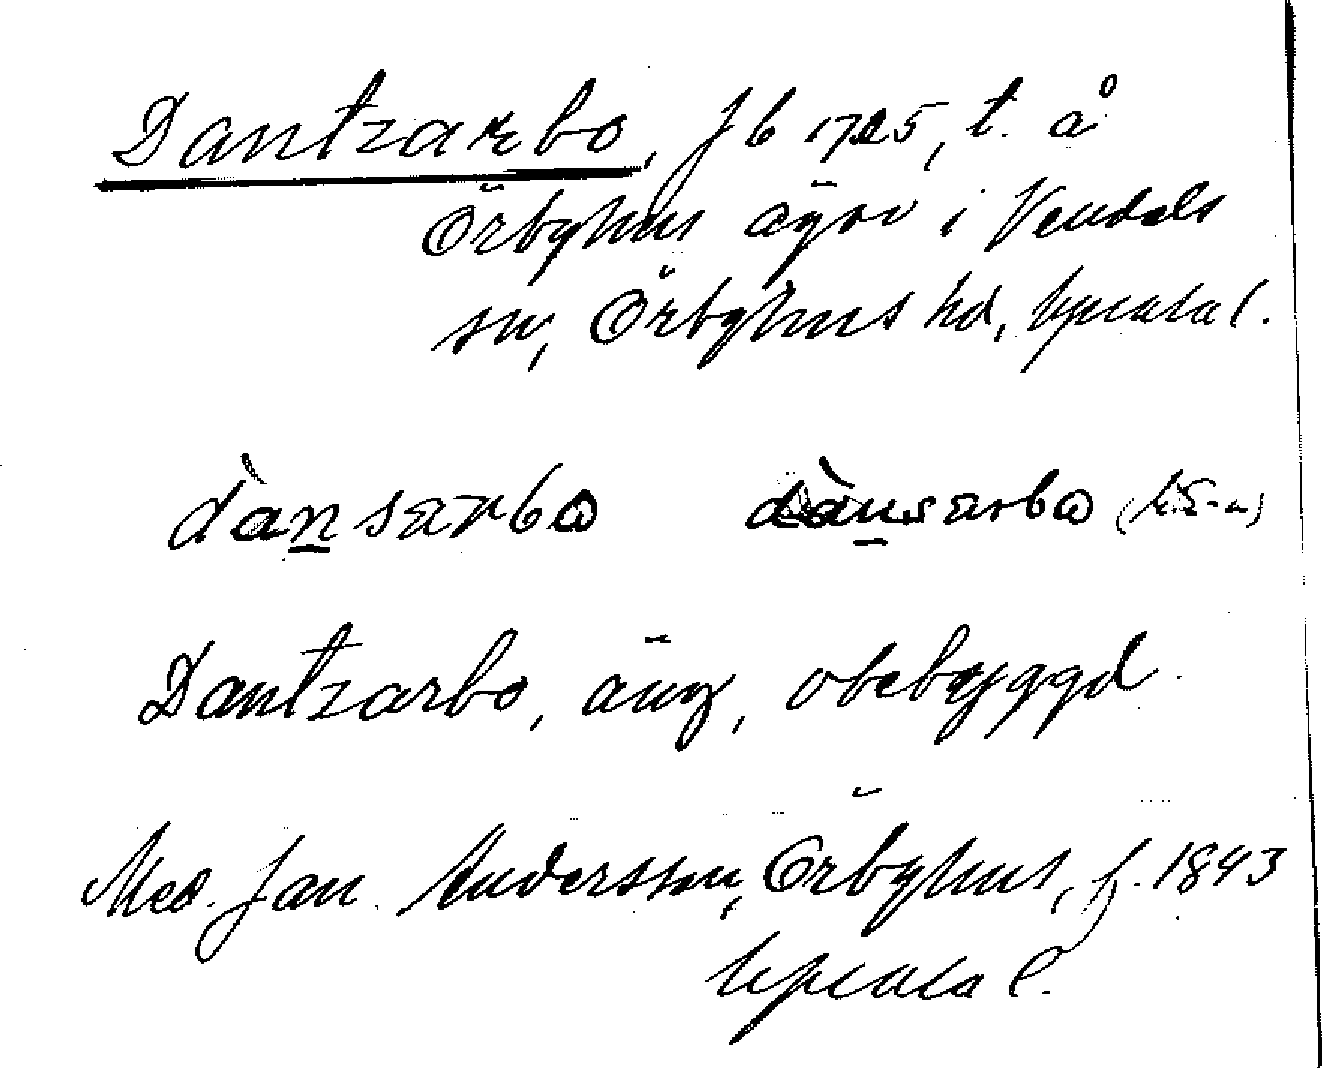 Dantzarbo, Jb 1725, t. å
Örbyhus ägor i Vendels
sn, Örbyhus hd, Upsala l.
dànsarbo dànsarbo
Dantzarbo, äng, obebyggd.
Med. Jan Andersson, Örbyhus, f. 1843
Upsala l.